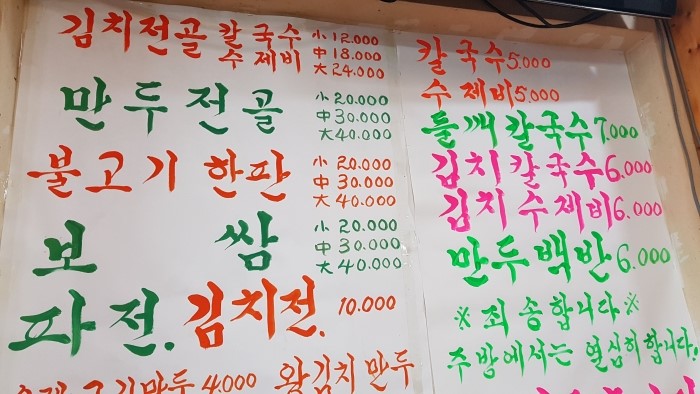 김치전골 칼국수 小 12.000
수제비 中 18.000
大 24.000
만두전골 小 20.000
中 30.000
大 40.000
불고기 한판 小 20.000
中 30.000
大 40.000
보쌈 小 20.000
中 30.000
大 40.000
파전. 김치전. 10.000
고기만두 4.000 왕김치만두
칼국수 5.000
수제비 5.000
들깨칼국수 7.000
김치칼국수 6.000
김치수제비 6.000
만두백반 6.000
※죄송합니다※
주방에서는 열심히합니다.